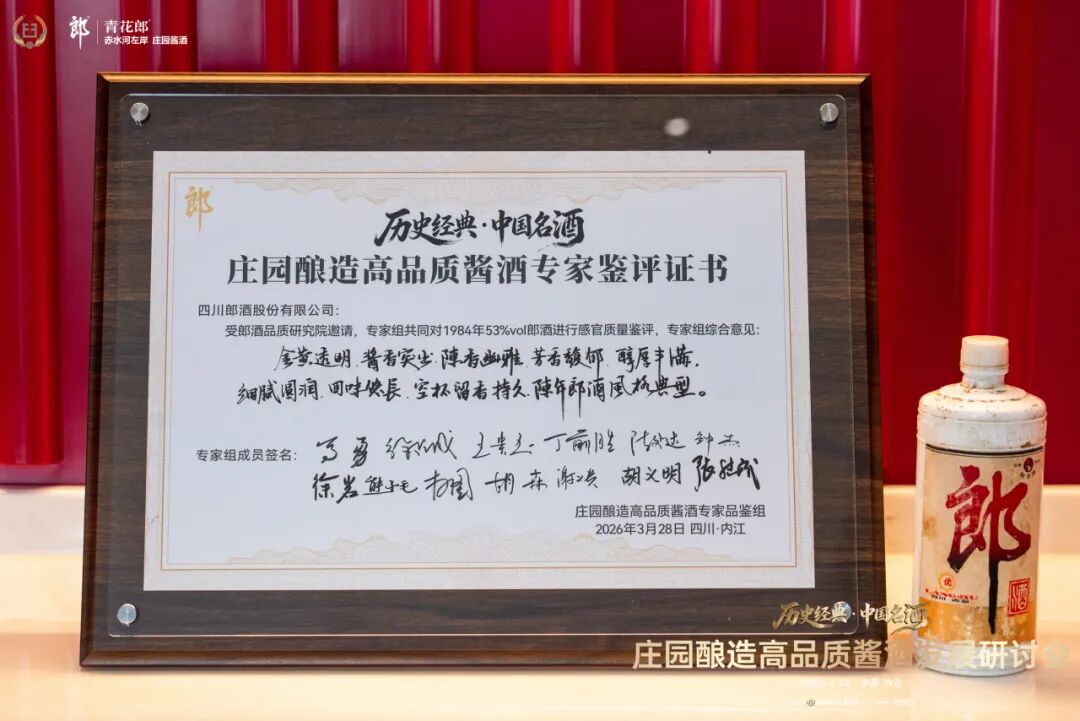 郎 青花郎
赤水河左岸 庄园酱酒
郎
历史经典·中国名酒
庄园酿造高品质酱酒专家鉴评证书
四川郎酒股份有限公司：
受郎酒品质研究院邀请，专家组共同对1984年53%vol郎酒进行感官质量鉴评，专家组综合意见：
金黄透明、酱香突出、陳香幽雅、芳香馥郁、醇厚丰满、
细腻圆润、回味悠長、空杯留香持久、陳年郎酒風格典型。
专家组成员签名：
徐岩 胡森 胡义明
庄园酿造高品质酱酒专家品鉴组
2026年3月28日 四川·内江
郎
酒
优
历史经典·中国名酒
庄园酿造高品质酱酒发展研讨会
中国 内江